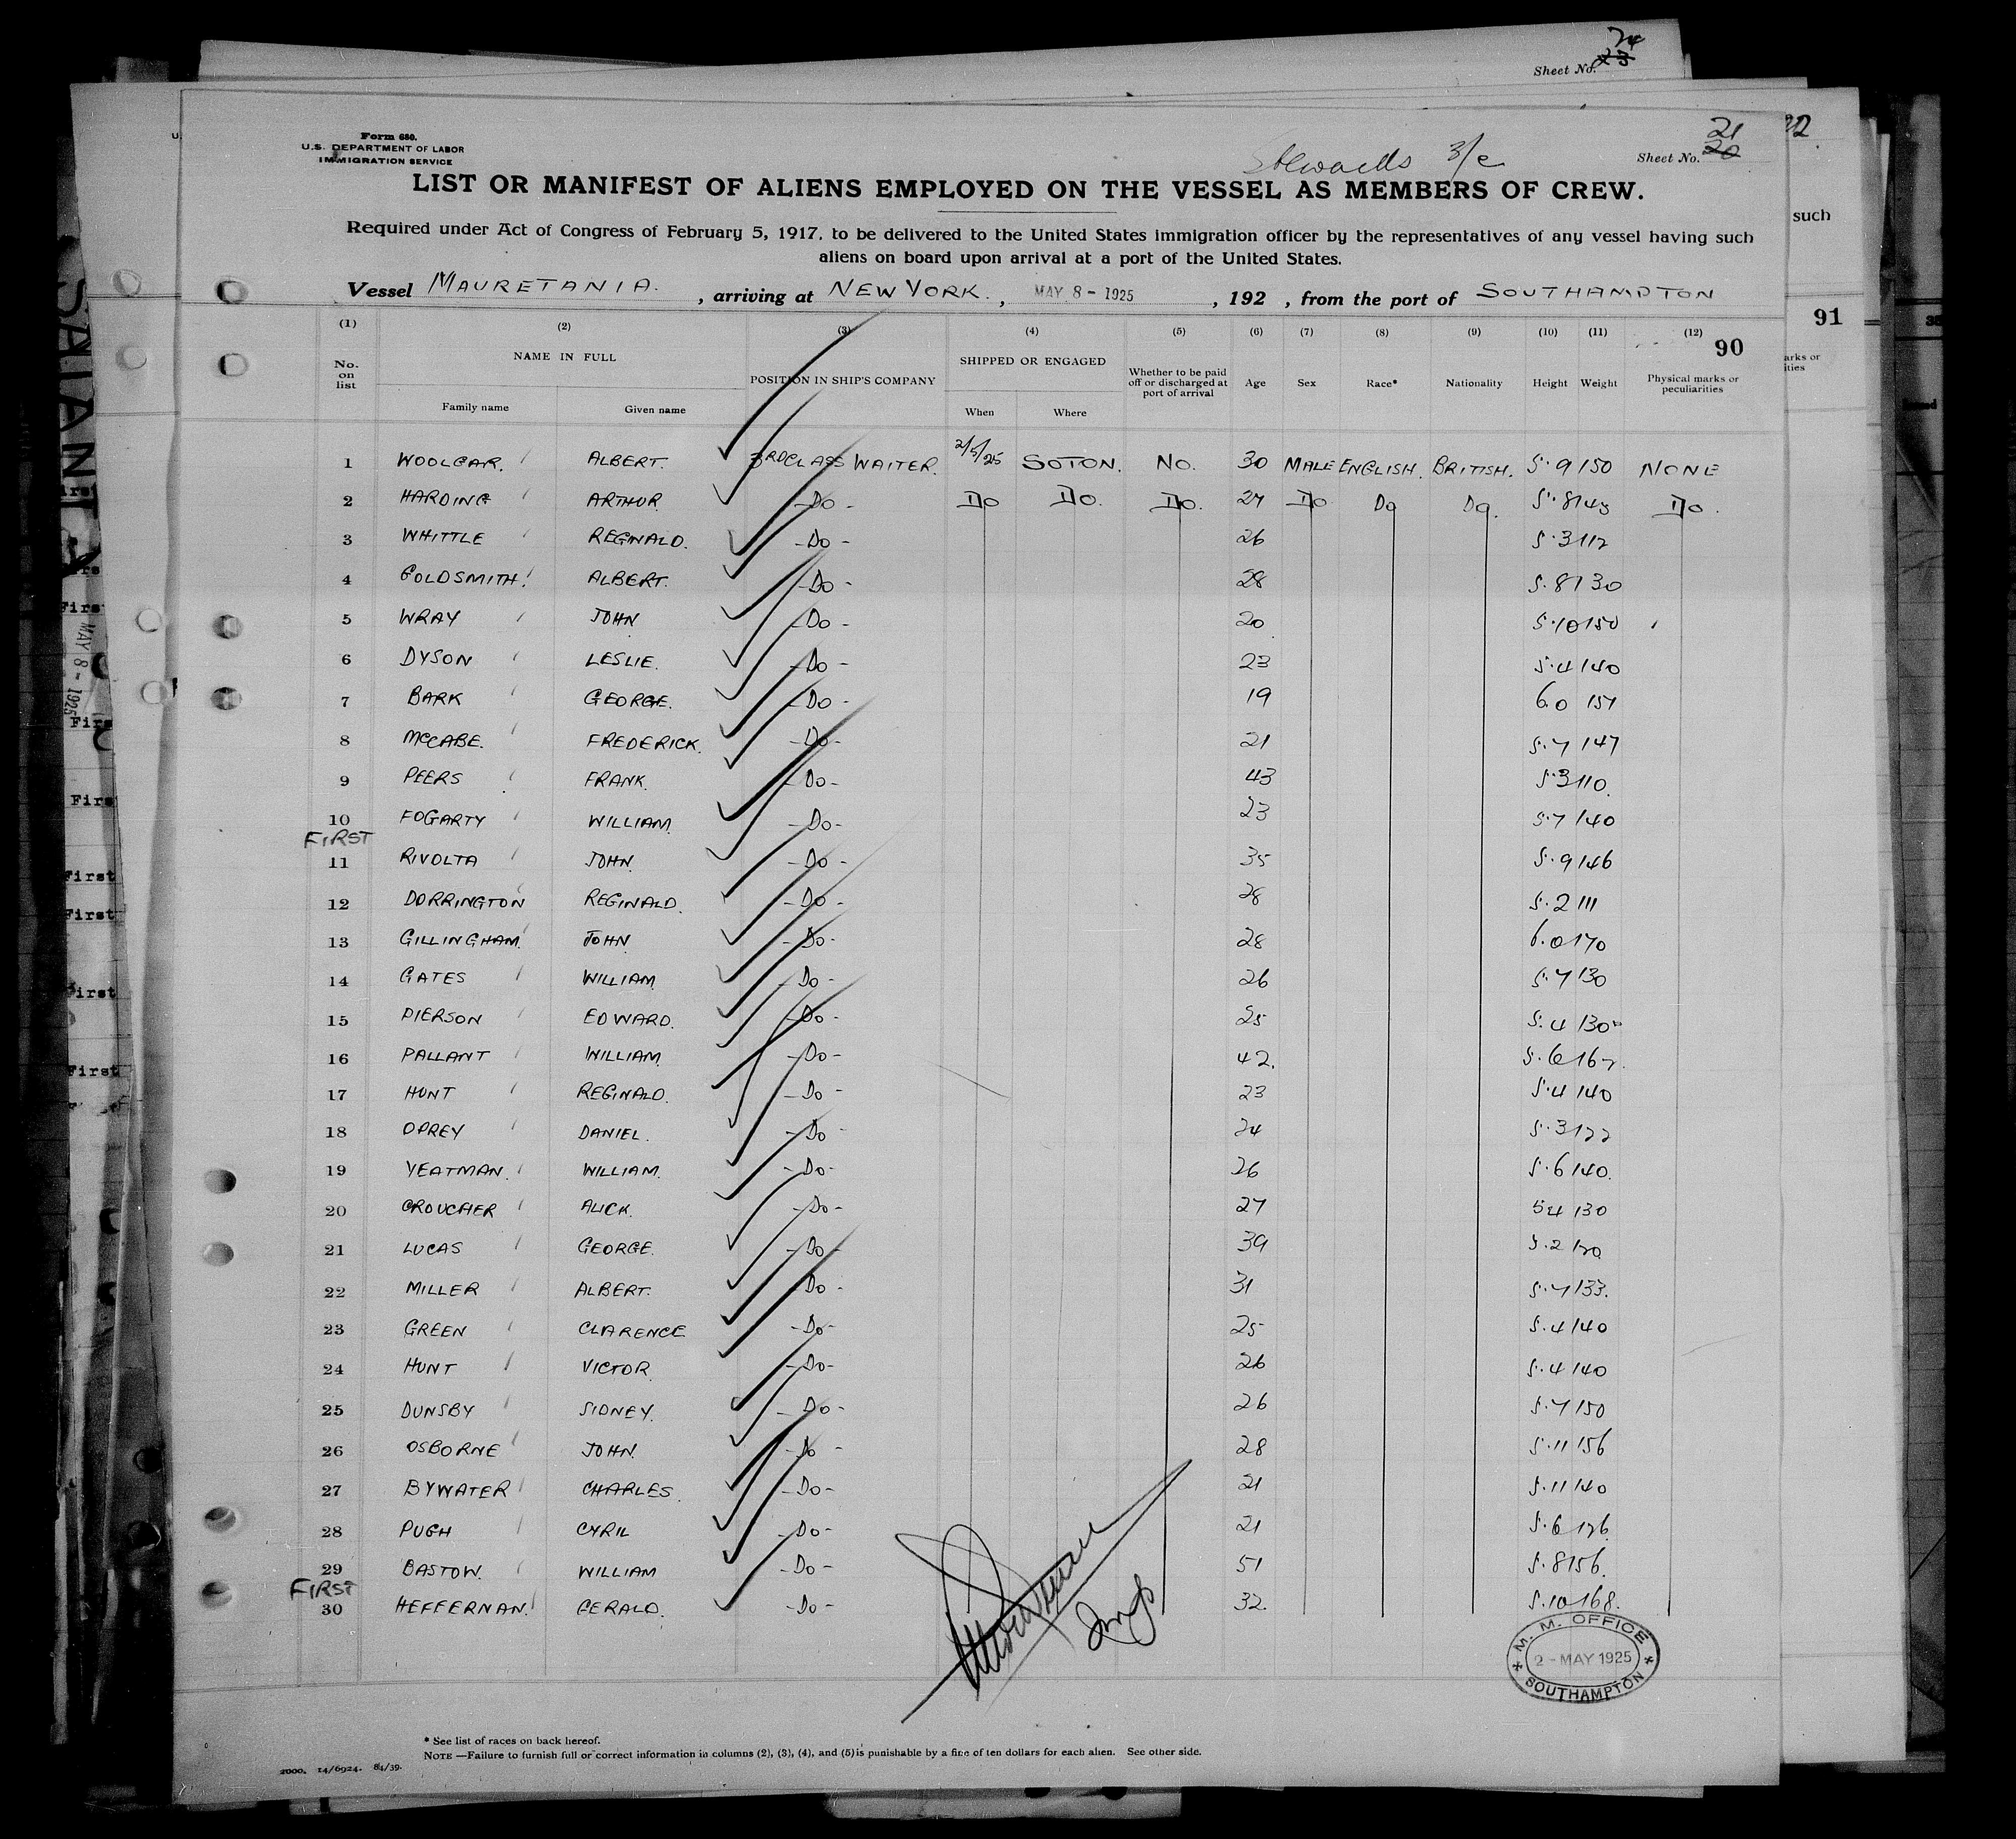 Sheet No. 24 23
Form 680.
U.S. DEPARTMENT OF LABOR
IMMIGRATION SERVICE
Stewards 3/c
Sheet No. 21 20
22
LIST OR MANIFEST OF ALIENS EMPLOYED ON THE VESSEL AS MEMBERS OF CREW.
Required under Act of Congress of February 5, 1917, to be delivered to the United States immigration officer by the representatives of any vessel having such
such
aliens on board upon arrival at a port of the United States.
Vessel MAURETANIA. , arriving at NEW YORK. , MAY 8 - 1925 , 192 , from the port of SOUTHAMPTON
91
(1) (2) (3) (4) (5) (6) (7) (8) (9) (10) (11) (12)
90
No. on list NAME IN FULL POSITION IN SHIP'S COMPANY SHIPPED OR ENGAGED Whether to be paid off or discharged at port of arrival Age Sex Race* Nationality Height Weight Physical marks or peculiarities
Family name Given name When Where
1 WOOLGAR. ALBERT. 3RD CLASS WAITER. 2/5/25 SOTON. NO. 30 MALE ENGLISH. BRITISH. 5.9 150 NONE
2 HARDING ARTHUR. -Do- Do Do. Do. 27 Do Do Do. 5.8 143 Do.
3 WHITTLE REGINALD. -Do- 26 5.3 112
4 GOLDSMITH. ALBERT. -Do- 28 5.8 130
5 WRAY JOHN -Do- 20 5.10 150
6 DYSON LESLIE. -Do- 23 5.4 140
7 BARK GEORGE. -Do- 19 6.0 151
8 McCABE. FREDERICK. -Do- 21 5.7 147
9 PEERS FRANK. -Do- 43 5.3 110.
10 FOGARTY WILLIAM. -Do- 23 5.7 140
FIRST
11 RIVOLTA JOHN. -Do- 35 5.9 146
12 DORRINGTON REGINALD. -Do- 28 5.2 111
13 GILLINGHAM. JOHN -Do- 28 6.0 170
14 GATES WILLIAM. -Do- 26 5.7 130
15 PIERSON EDWARD. -Do- 25 5.4 130
16 PALLANT WILLIAM. -Do- 42. 5.6 167.
17 HUNT REGINALD. -Do- 23 5.4 140
18 OPREY DANIEL. -Do- 24 5.3 122
19 YEATMAN. WILLIAM. -Do- 26 5.6 140.
20 CROUCHER ALICK. -Do- 27 5 4 130
21 LUCAS GEORGE. -Do- 39 5.2 120
22 MILLER ALBERT. -Do- 31 5.7 133.
23 GREEN CLARENCE -Do- 25 5.4 140
24 HUNT VICTOR. -Do- 26 5.4 140
25 DUNSBY SIDNEY. -Do- 26 5.7 150
26 OSBORNE JOHN. -Do- 28 5.11 156
27 BYWATER CHARLES. -Do- 21 5.11 140
28 PUGH CYRIL -Do- 21 5.6 126
29 BASTOW. WILLIAM -Do- 51 5.8 156.
FIRST
30 HEFFERNAN. GERALD. -Do- 32. 5.10 168.
M. M. OFFICE
2 - MAY 1925
SOUTHAMPTON
* See list of races on back hereof.
NOTE —Failure to furnish full or correct information in columns (2), (3), (4), and (5) is punishable by a fine of ten dollars for each alien. See other side.
2000. 14/6924. 84/39.
MAY 8 - 1925
First
First
First
First
First
First